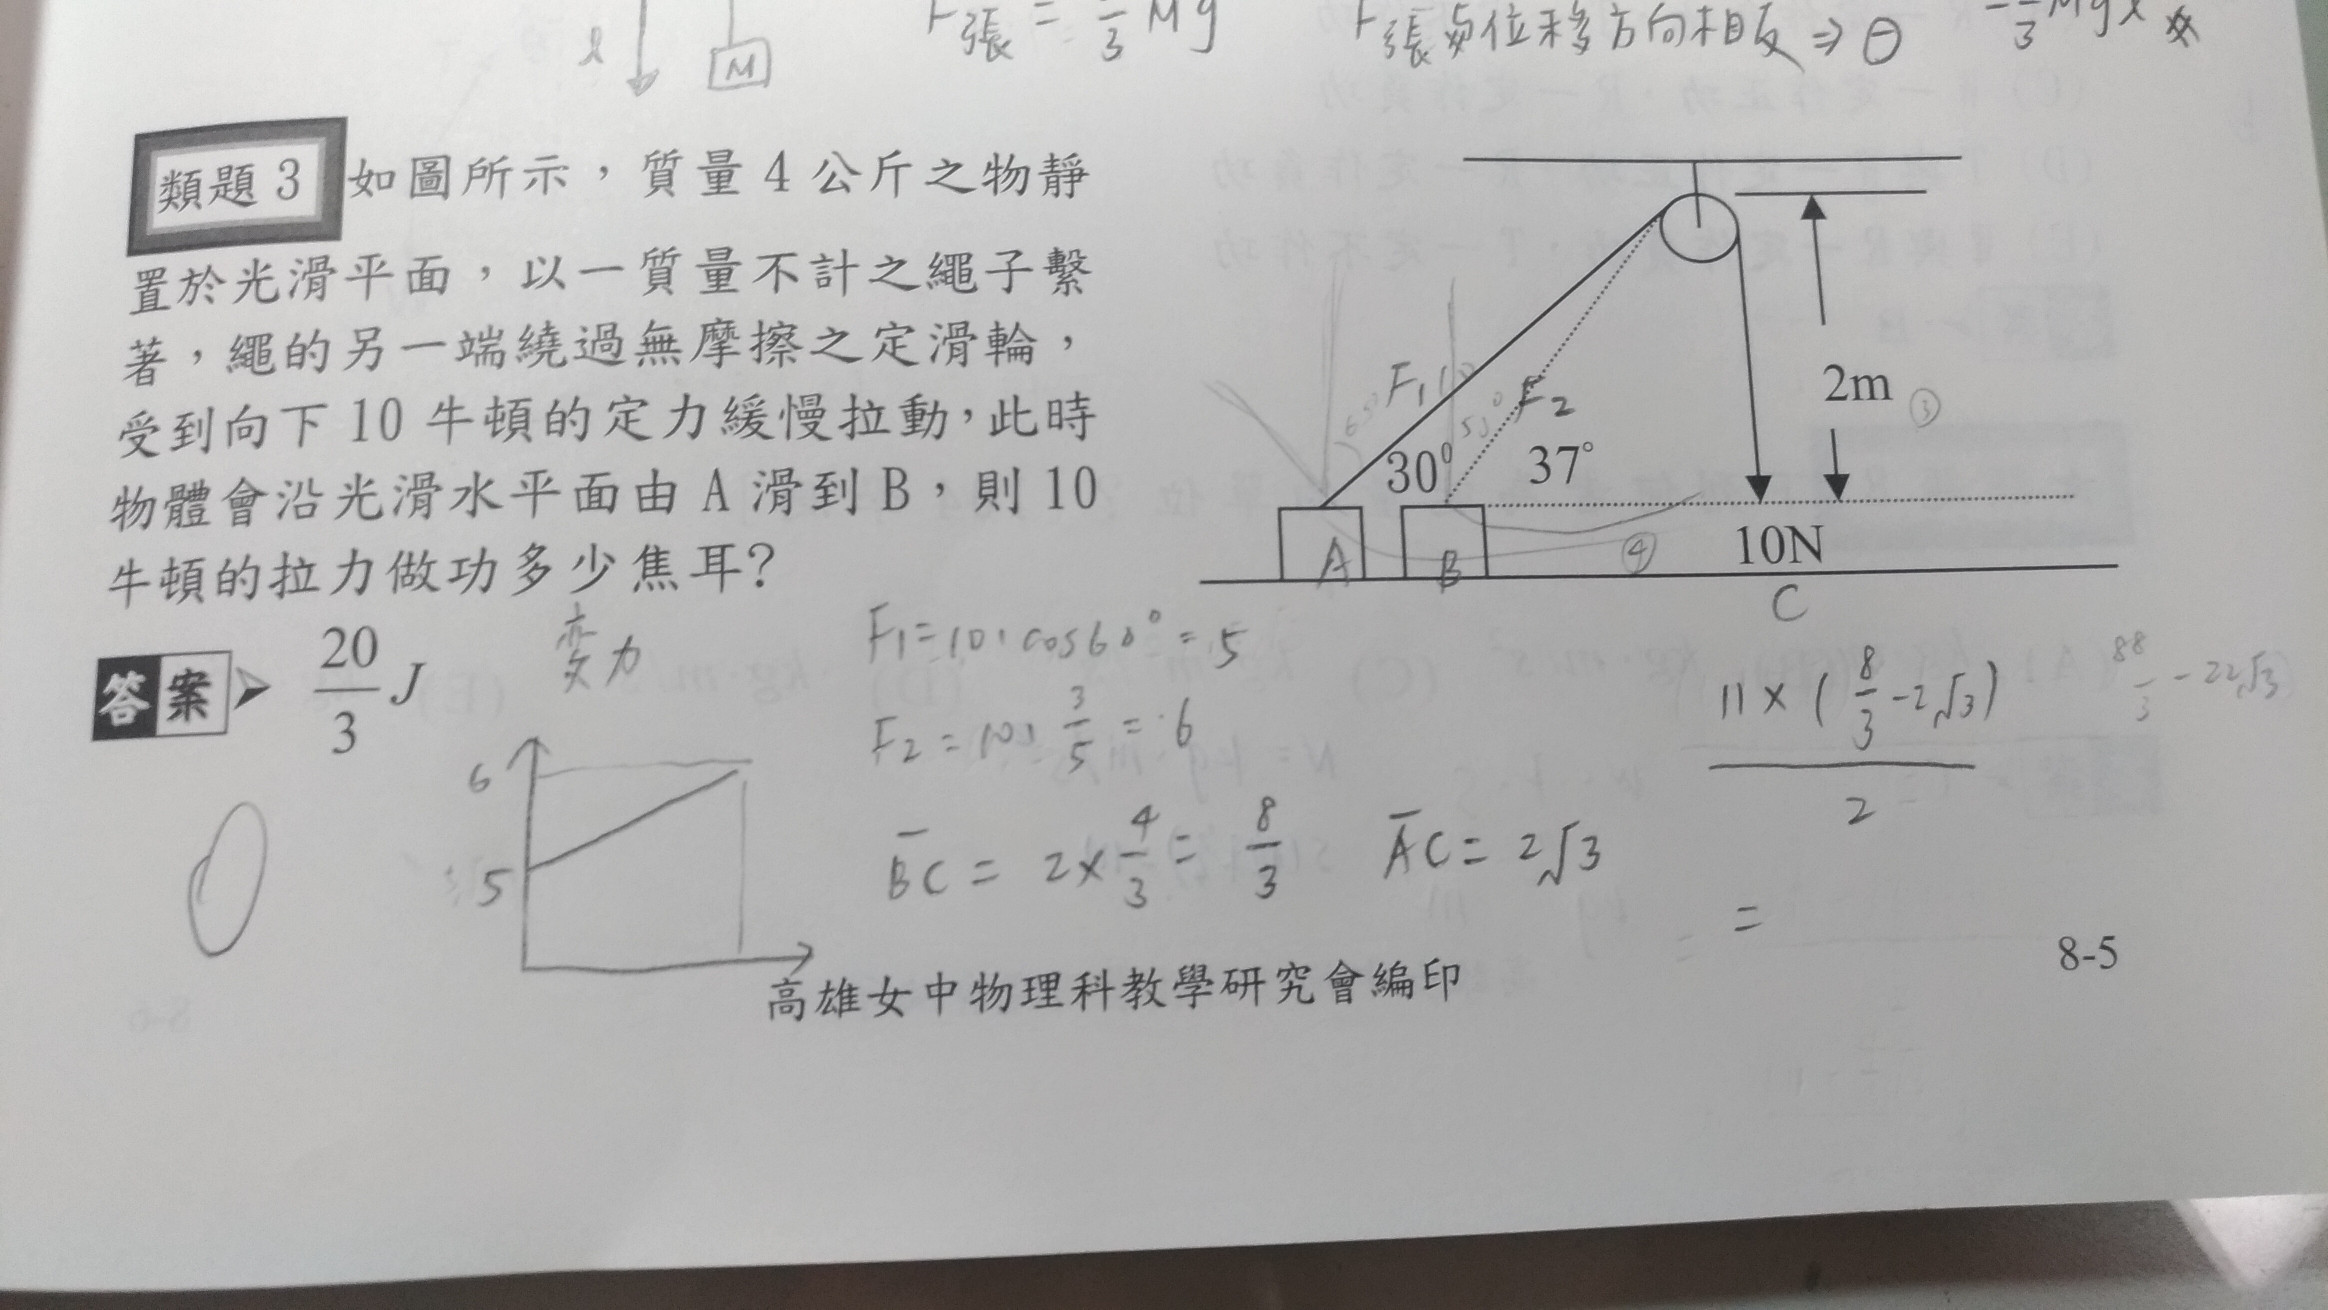 l
M
F張 = Mg
3
F張與位移方向相反 ⇒ ⊖
3
類題 3 如圖所示，質量 4 公斤之物靜
置於光滑平面，以一質量不計之繩子繫
著，繩的另一端繞過無摩擦之定滑輪，
受到向下 10 牛頓的定力緩慢拉動，此時
物體會沿光滑水平面由 A 滑到 B，則 10
牛頓的拉力做功多少焦耳？
答案 20/3 J
2m
③
F₁
F₂
30⁰
37°
A
B
④
10N
C
变力
F₁=10·cos60°=5
F₂=10·3/5=6
6
5
BC = 2×4/3 = 8/3
AC = 2√3
11×(8/3-2√3)
2
88/3-22√3
=
高雄女中物理科教學研究會編印
8-5